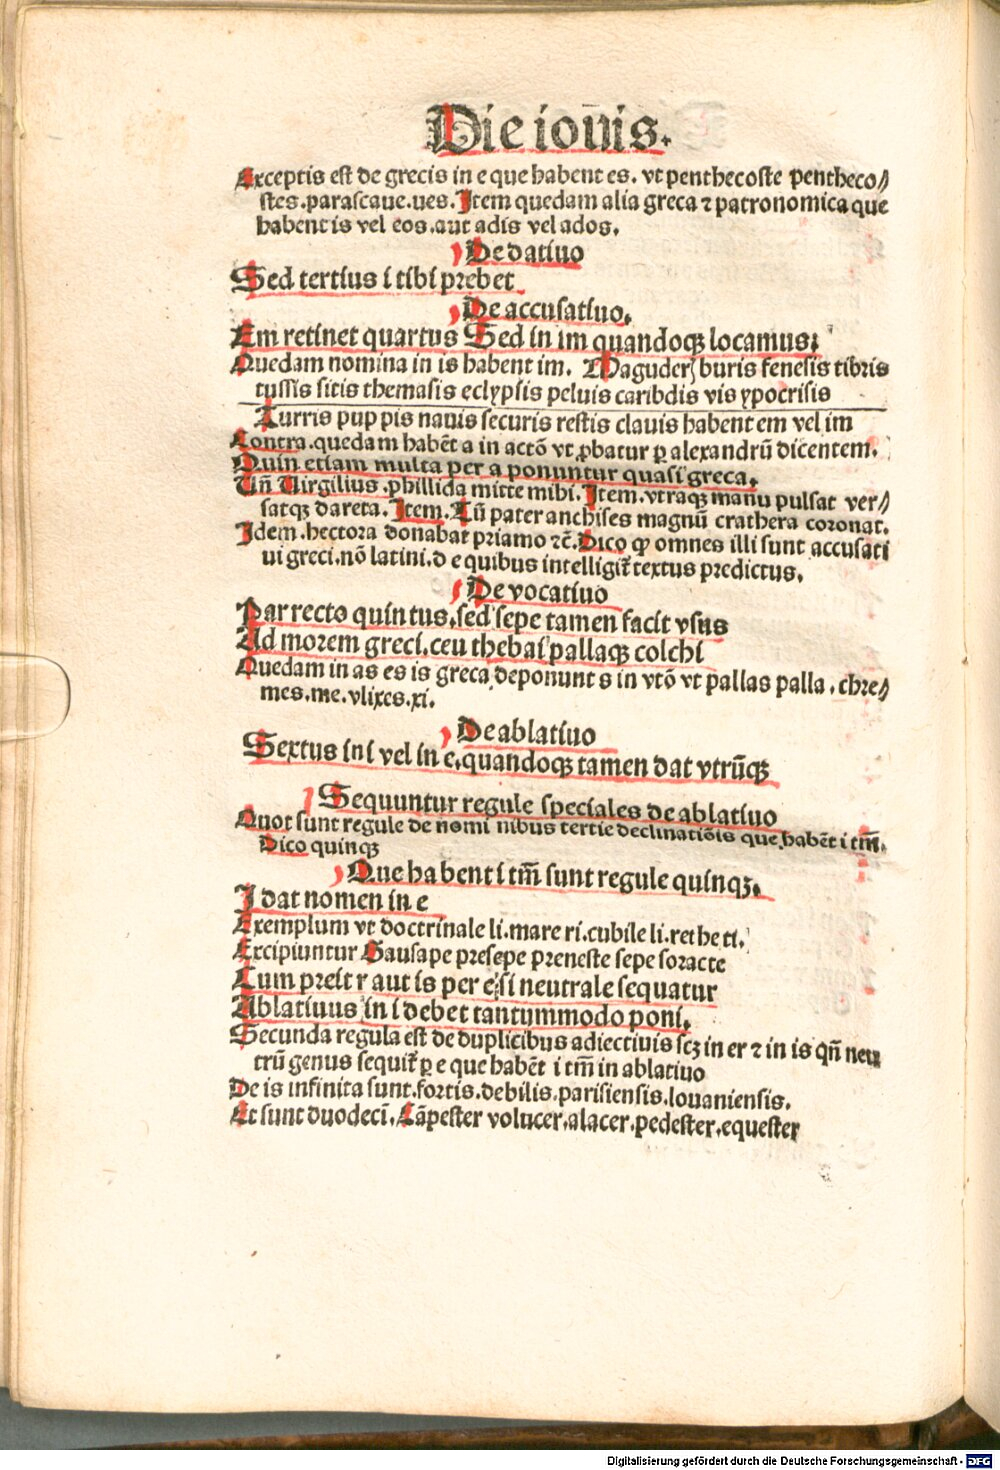 Die iouis.
Exceptis est de grecis in e que habent es. vt penthecoste pentheco/
stes.parasceue.ues. Item quedam alia greca ⁊ patronomica que
habent is vel eos.aut adis vel ados.
De datiuo
Sed tertius i tibi prebet
De accusatiuo.
Em retinet quartus Sed in im quandoqꝫ locamus.
Quedam nomina in is habent im. Maguder buris fenesis tibris
tussis sitis themasis eclypsis peluis caribdis vis ypocrisis
Turris pup pis nauis securis restis clauis habent em vel im
Contra.quedam habēt a in actō vt ꝓbatur ꝑ alexandrū dicentem.
Quin etiam multa per a ponuntur quasi greca.
Un̄ Uirgilius.phillida mitte mihi. Item.vtraqꝫ manu pulsat ver/
satqꝫ dareta. Item. Tū pater anchises magnū crathera coronat.
Idem.hectora donabat priamo ⁊c̄. Dico ꝙ omnes illi sunt accusati
ui greci.nō latini.d e quibus intelligit᷑ textus predictus.
De vocatiuo
Par recto quintus.sed sepe tamen facit vsus
Ad morem greci.ceu thebai pallaqꝫ colchi
Quedam in as es is greca deponunt s in vtō vt pallas palla.chre/
mes.me.vlixes.xi.
De ablatiuo
Sextus in i vel in e.quandoqꝫ tamen dat vtrūqꝫ
Sequuntur regule speciales de ablatiuo
Quot sunt regule de nomi nibus tertie declinatiōis que habēt i tm̄.
Dico quinqꝫ
Que habent i tm̄ sunt regule quinqꝫ.
I dat nomen in e
Exemplum vt doctrinale li.mare ri.cubile li.rethe ti.
Excipiuntur Gausape presepe preneste sepe soracte
Cum preit r aut is per e si neutrale sequatur
Ablatiuus in i debet tantummodo poni.
Secunda regula est de duplicibus adiectiuis scꝫ in er ⁊ in is qn̄ neu
trū genus sequit᷑ ꝑ e que habēt i tm̄ in ablatiuo
De is infinita sunt.fortis.debilis.parisiensis.louaniensis.
Et sunt duodecī. Cāpester volucer.alacer.pedester.equester
Digitalisierung gefördert durch die Deutsche Forschungsgemeinschaft - DFG